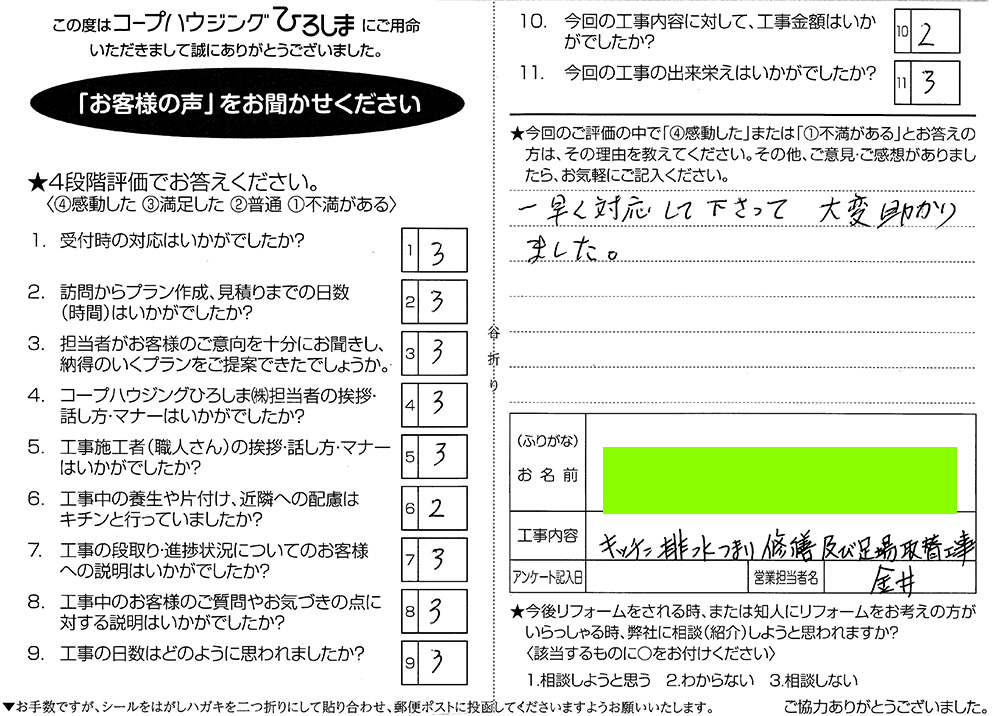 この度はコープハウジングひろしまにご用命
いただきまして誠にありがとうございました。
「お客様の声」をお聞かせください
★4段階評価でお答えください。
〈④感動した ③満足した ②普通 ①不満がある〉
1. 受付時の対応はいかがでしたか?
1 3
2. 訪問からプラン作成、見積りまでの日数
(時間)はいかがでしたか?
2 3
3. 担当者がお客様のご意向を十分にお聞きし、
納得のいくプランをご提案できたでしょうか。
3 3
4. コープハウジングひろしま㈱担当者の挨拶・
話し方・マナーはいかがでしたか?
4 3
5. 工事施工者(職人さん)の挨拶・話し方・マナー
はいかがでしたか?
5 3
6. 工事中の養生や片付け、近隣への配慮は
キチンと行っていましたか?
6 2
7. 工事の段取り・進捗状況についてのお客様
への説明はいかがでしたか?
7 3
8. 工事中のお客様のご質問やお気づきの点に
対する説明はいかがでしたか?
8 3
9. 工事の日数はどのように思われましたか?
9 3
▼お手数ですが、シールをはがしハガキを二つ折りにして貼り合わせ、郵便ポストに投函してくださいますようお願いいたします。
谷折り
10. 今回の工事内容に対して、工事金額はいか
がでしたか?
10 2
11. 今回の工事の出来栄えはいかがでしたか?
11 3
★今回のご評価の中で「④感動した」または「①不満がある」とお答えの
方は、その理由を教えてください。その他、ご意見・ご感想がありまし
たら、お気軽にご記入ください。
一早く対応して下さって 大変助かり
ました。
(ふりがな)
お名前
工事内容 キッチン排水つまり修繕及び足場取替工事
アンケート記入日 営業担当者名 金井
★今後リフォームをされる時、または知人にリフォームをお考えの方が
いらっしゃる時、弊社に相談(紹介)しようと思われますか?
〈該当するものに○をお付けください〉
1.相談しようと思う 2.わからない 3.相談しない
ご協力ありがとうございました。